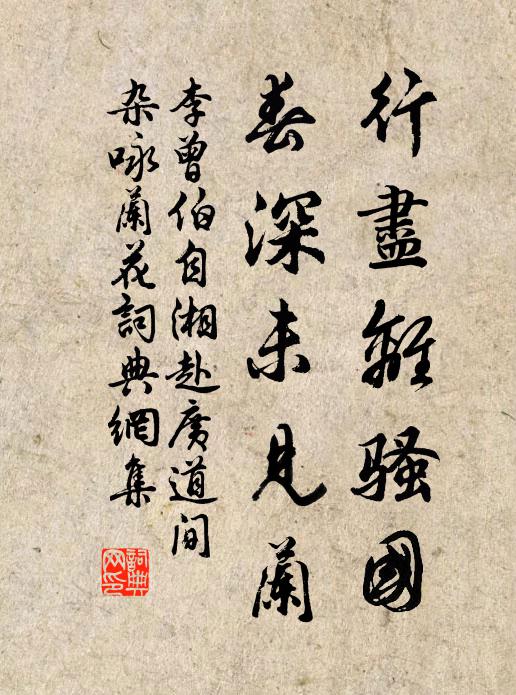 行盡離騷國
春深未見蘭
李曾伯自湘赴廣道间
杂咏蘭花詞典網集
詞典
网印